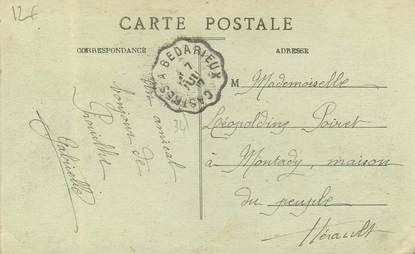 12f
CARTE POSTALE
CORRESPONDANCE
ADRESSE
CASTRES A BEDARIEUX
7
JUIL
Mon amical
bonjour de
Gabrielle
34
M Mademoiselle
Léopoldine Poiret
à Montady, maison
du peuple
Hérault